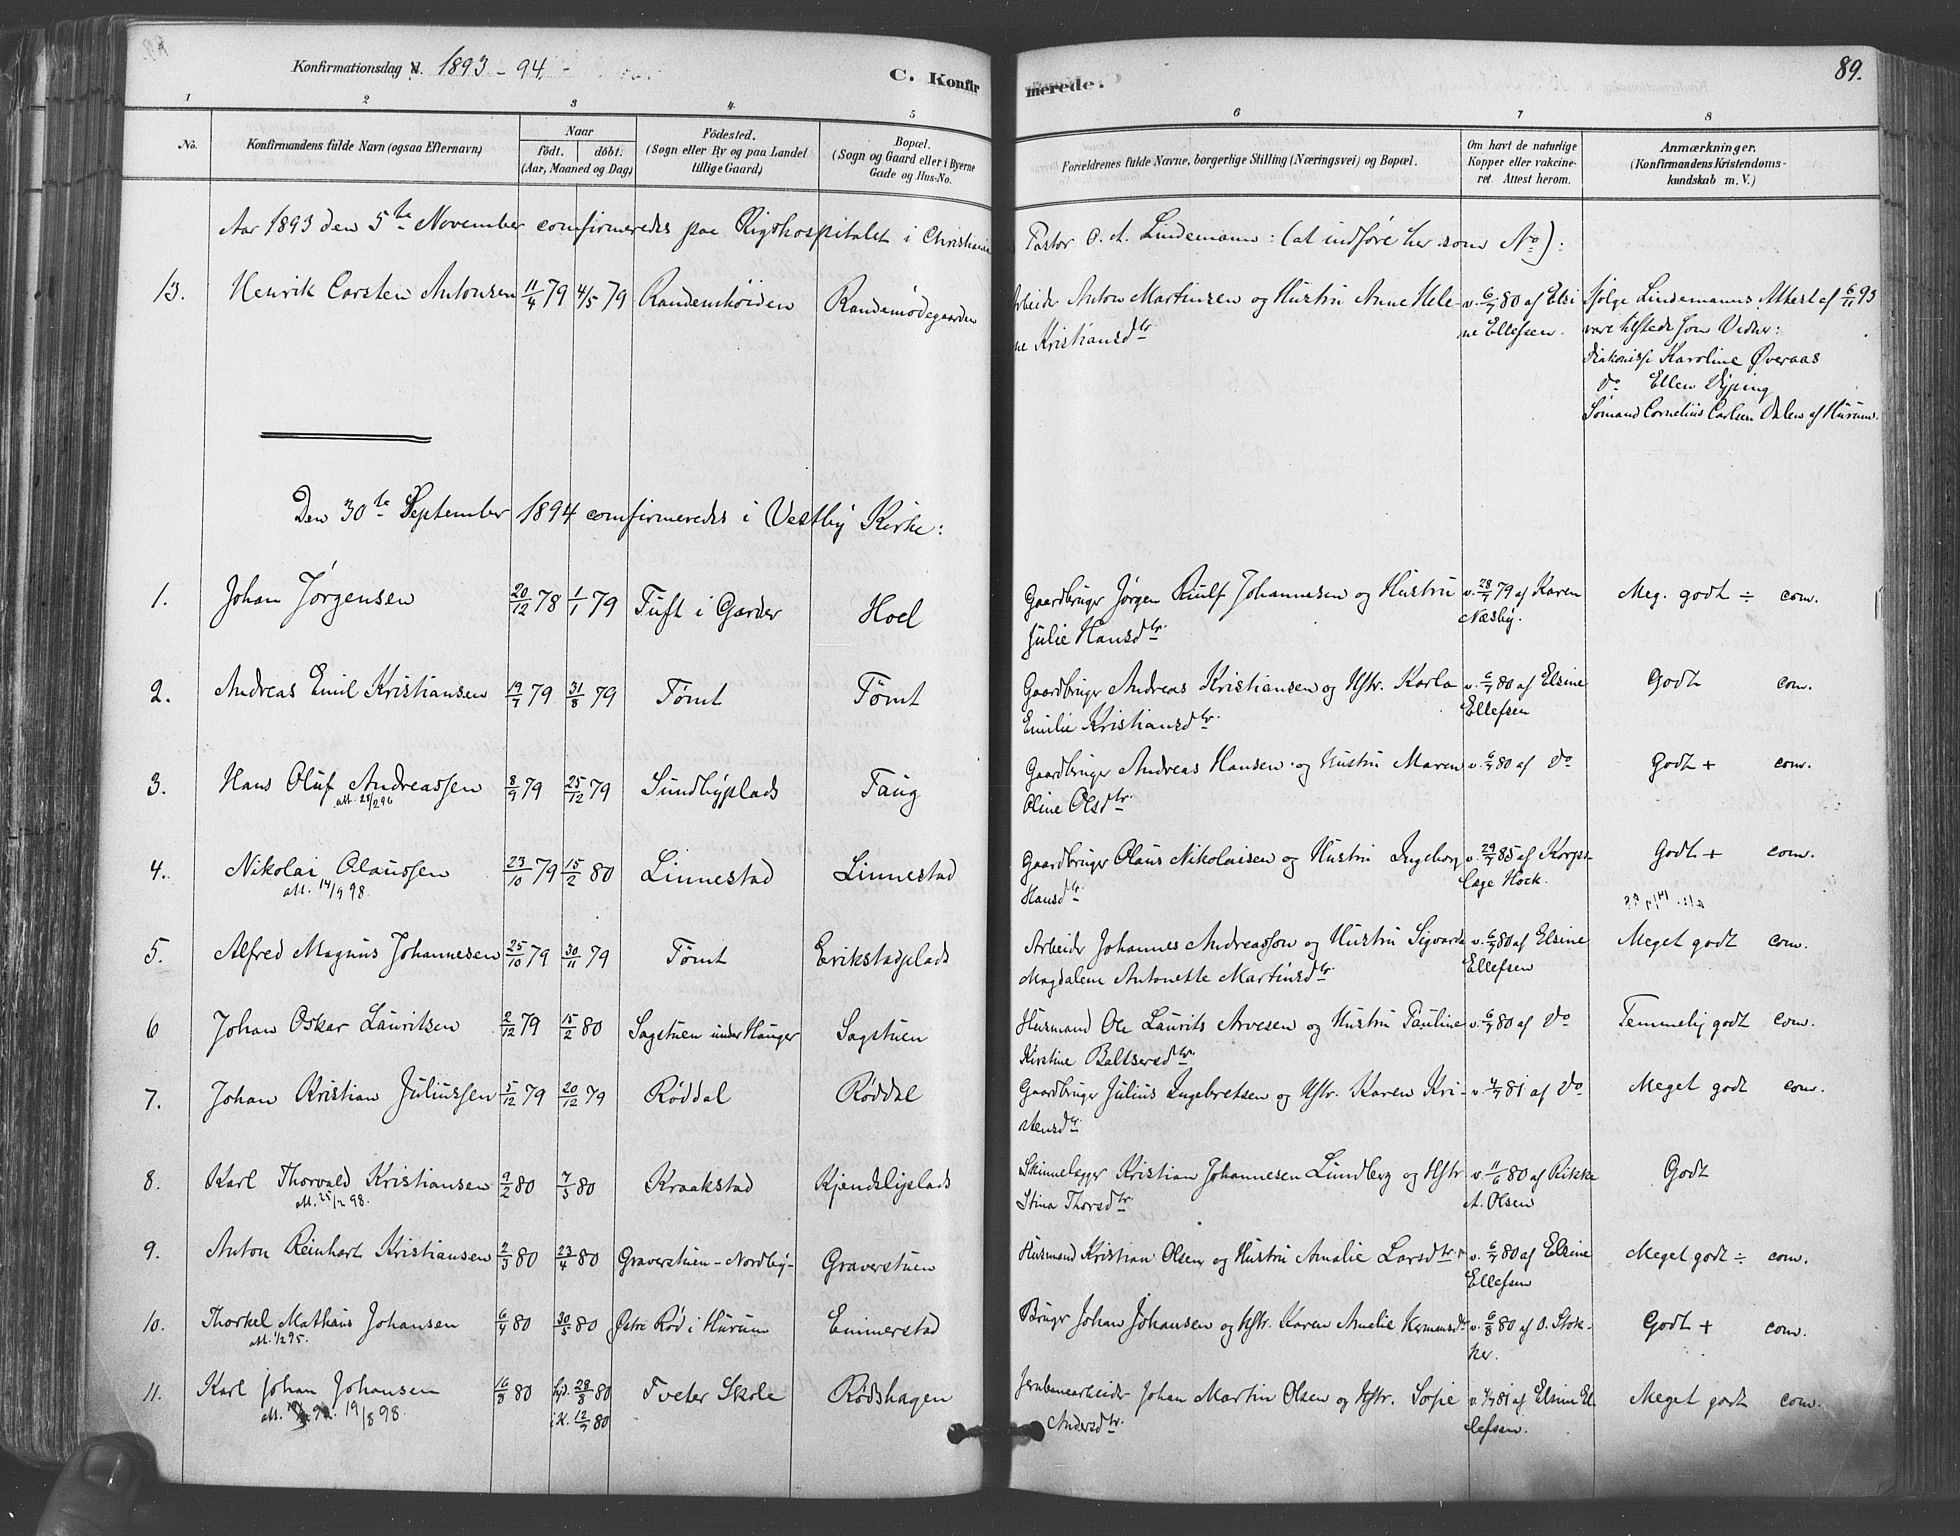 Konfirmationsdag d. 1893-94.
C. Konfirmerede.
89.
1 2 3 4 5 6 7 8
No.
Konfirmandens fulde Navn (ogsaa Efternavn)
Naar
födt. döbt.
(Aar, Maaned og Dag)
Födested.
(Sogn eller By og paa Landet
tillige Gaard)
Bopæl.
(Sogn og Gaard eller i Byerne
Gade og Hus-No.
Forældrenes fulde Navne, borgerlige Stilling (Næringsvei) og Bopæl.
Om havt de naturlige
Kopper eller vakcine-
ret. Attest herom.
Anmærkninger.
(Konfirmandens Kristendoms-
kundskab m. V.)
Aar 1893 den 5te November comfirmeredes paa Rigshospitalet i Christiania Pastor O. A. Lindemann: (at indføre her som No):
13. Henrik Carsten Antonsen 11/4 79 4/5 79 Randemhöiden Randemödegaarden Arbeider Anton Martinsen og Hustru Anne Hele- v. 6/7 80 af Elsi- Ifølge Lindemanns Attest af 6/11 93
ne Kristiansdtr ne Ellefsen. vare tilstede som Vidner:
Diakonisse Karoline Øveraas
do Ellen
Sömand Cornelius Carlsen Dalen af Hurum.
Den 30te September 1894 comfirmeredes i Vestby Kirke:
1. Johan Jørgensen 20/12 78 1/1 79 Tuft i Garder Hoel Gaardbruger Jørgen Riulf Johannesen og Hustru v. 28/7 79 af Karen Meg. godt ÷ com.
Julie Hansdtr. Næsby.
2. Andreas Emil Kristiansen 19/7 79 31/8 79 Tømt Tømt Gaardbruger Andreas Kristiansen og Hstr. Karla v. 6/7 80 af Elsine Godt com.
Emilie Kristiansdtr. Ellefsen
3. Hans Oluf Andreassen 8/9 79 25/12 79 Sundbyplads Taug Gaardbruger Andreas Hansen og Hustru Maren v. 6/7 80 af do Godt + com.
att. 28/2 96 Oline Olsdtr.
4. Nikolai Olaussen 23/10 79 15/2 80 Linnestad Linnestad Gaardbruger Olaus Nikolaisen og Hustru Ingeborg v. 29/7 85 af Korps- Godt + com.
att. 14/9 98. Hansdtr. læge Höck.
5. Alfred Magnus Johannesen 25/10 79 30/11 79 Tømt Erikstadplads Arbeider Johannes Andreassen og Hustru Sigvarda v. 6/7 80 af Elsine Meget godt com.
Magdalene Antonette Martinsdtr. Ellefsen
6 Johan Oskar Lauritsen 2/12 79 15/2 80 Sagstuen under Hauger Sagstuen Husmand Ole Laurits Arvesen og Hustru Pauline v. 6/7 80 af do Temmelig godt com.
Kirstine Baltsersdtr.
7. Johan Kristian Juliussen 5/12 79 20/12 79 Røddal Røddal Gaardbruger Julius Ingebretsen og Hstr. Karen Kri- v. 4/7 81 af do Meget godt com.
stensdtr.
8. Karl Thorvald Kristiansen 9/2 80 7/3 80 Kraakstad Kjændsliplads Skinnelægger Kristian Johannesen Lundberg og Hstr v. 11/6 80 af Rikke Godt
att. 25/2 98. Stina Thorsdtr. A. Olsen
9. Anton Reinhart Kristiansen 2/3 80 23/4 80 Graverstuen-Nordby- Graverstuen Husmand Kristian Olsen og Hustru Amalie Larsdtr. v. 6/7 80 af Elsine Meget godt ÷ com.
Ellefsen
10. Thorkel Mathæus Johansen 6/4 80 30/5 80 Østre Rød i Hurum Emmerstad Bruger Johan Johansen og Hstr. Karen Amalie Hermansdtr v. 6/8 80 af O. Stok- Godt + com.
att. 1/2 95. ker.
11. Karl Johan Johansen 16/8 80 hjd. 28/8 80 Tveter Skole Rødshagen Jernbanearbeider Johan Martin Olsen og Hstr. Sofie v. 4/7 81 af Elsine El- Meget godt com.
att. 19/8 98. i K. 12/9 80 Andersdtr. lefsen.